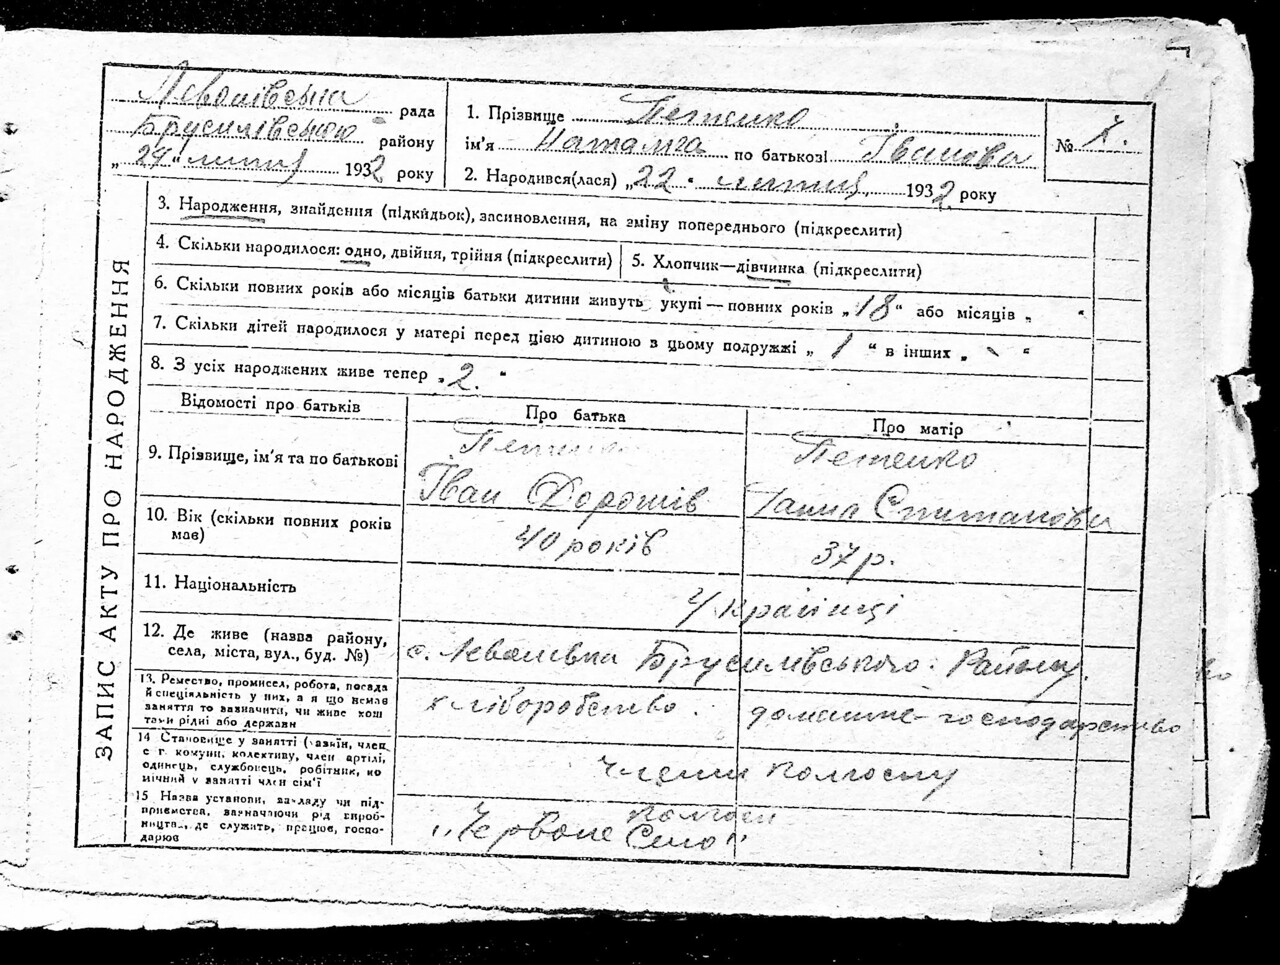 Левонівська рада
Брусилівського району
„24" лютц 1932 року
1. Прізвище Петенко
ім'я Наталга по батькові Іванова
2. Народився(лася) „22" лютц 1932 року
№ 7.
ЗАПИС АКТУ ПРО НАРОДЖЕННЯ
3. Народження, знайдення (підкидьок), засиновлення, на зміну попереднього (підкреслити)
4. Скільки народилося: одно, двійня, трійня (підкреслити)
5. Хлопчик—дівчинка (підкреслити)
6. Скільки повних років або місяців батьки дитини живуть укупі — повних років „18" або місяців „ "
7. Скільки дітей народилося у матері перед цією дитиною з цьому подружжі „ 1 " в інших „ \ "
8. З усіх народжених живе тепер „2."
Відомості про батьків
Про батька
Про матір
9. Прізвище, ім'я та по батькові
Петенко
Іван Дорошів
Петенко
Ганна Степанова
10. Вік (скільки повних років мав)
40 років
37 р.
11. Національність
Українці
12. Де живе (назва району,
села, міста, вул., буд. №)
с. Левонівка Брусилівського Району.
13. Ремество, промисел, робота, посада
й спеціяльність у них, а я що немає
заняття то зазначити, чи живе кош
тами рідні або держави
хліборобство.
домашнє-господарство
14 Становище у занятті (хазяїн, член
с г. комуни, колективу, член артілі,
одинець, службовець, робітник, ко
мічний у занятті член сім'ї
члени колгоспу
15 Назва установи, закладу чи під-
приємства, зазначаючи рід вироб-
ництва, де служить, працює, госпо-
дарює
колгосп
„Червоне Село"